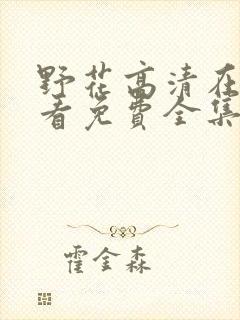 野花高清在
看免费全集
霍金森